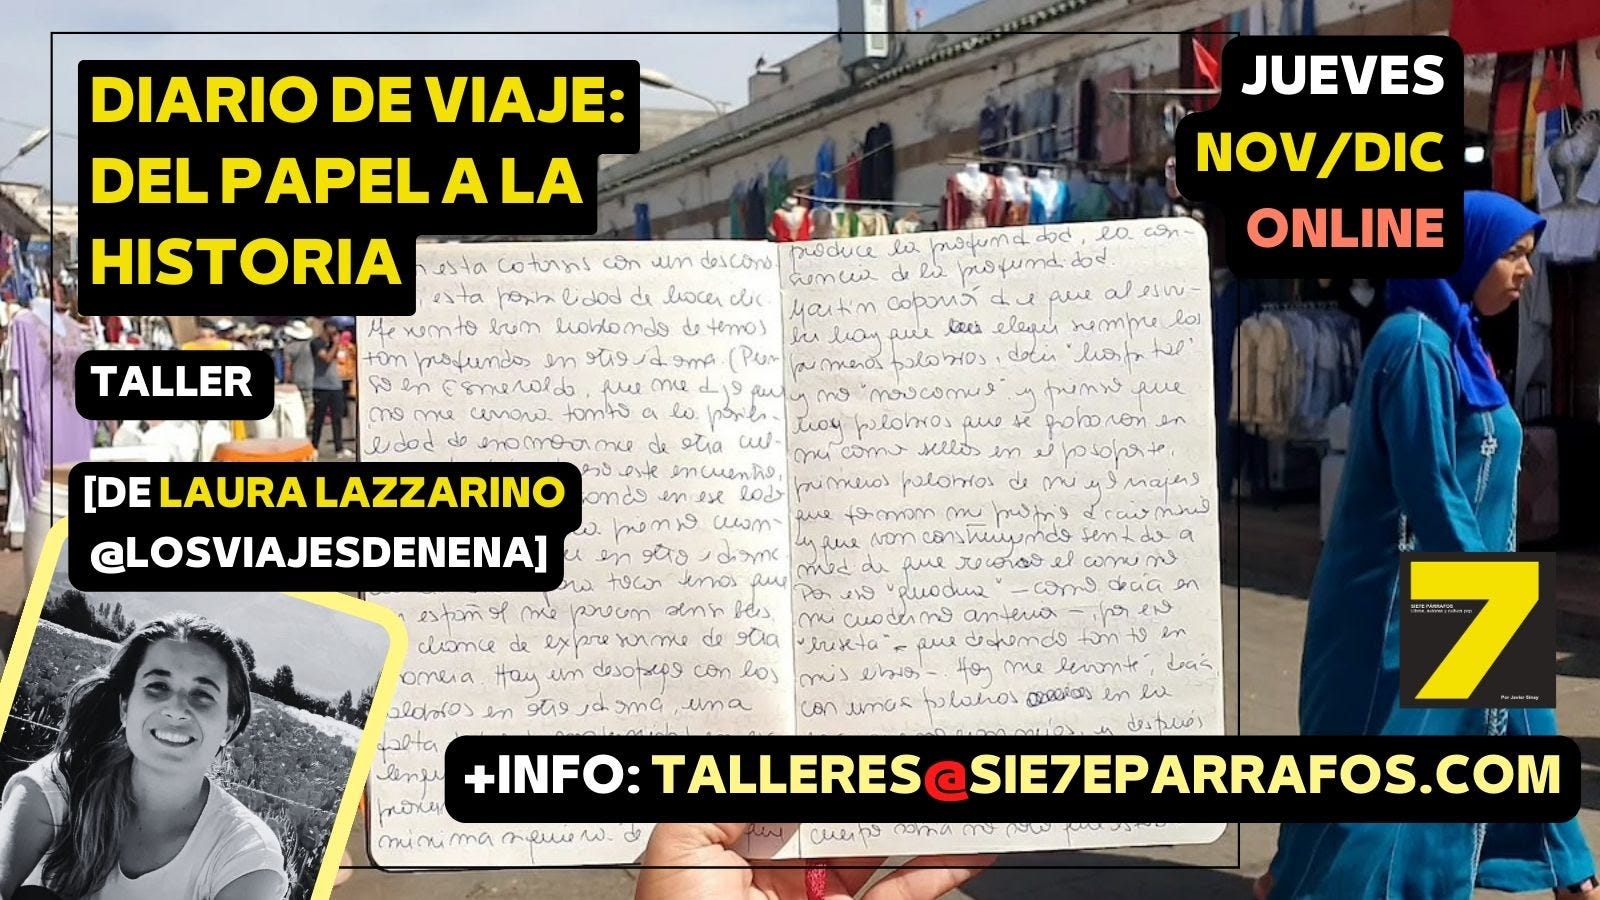 DIARIO DE VIAJE:
DEL PAPEL A LA
HISTORIA
JUEVES
NOV/DIC
ONLINE
TALLER
[DE LAURA LAZZARINO
@LOSVIAJESDENENA]
esta con un
esta posibilidad de hacer clic.
Me siento bien hablando de temos
tan profundos en otro idioma.
so en Esmeralda, que me dijo que
no me cerrara tanto a la posibi-
lidad de enamorarme de otra cul-
este encuentro,
en ese lado
pienso cuan-
en otro idioma.
tocar temas que
español me parecen sensibles,
chance de expresarme de otra
manera. Hay un desapego con los
palabras en otro idioma, una
falta
mínima siquiera. de
produce la profundidad, la con-
ciencia de la profundidad.
Martín Caparrós dice que al escri-
bir hay que elegir siempre las
primeras palabras, decir "hospital"
y no "nosocomio" y pienso que
hay palabras que se grabaron en
mí como sellos en el pasaporte,
primeras palabras de mi yo viajero
que forman mi propio diccionario
y que van construyendo sentido a
medida que recorro el camino.
Por eso – como decía en
mi cuaderno anterior –, por eso
que defiendo tanto en
mis libros –. Hoy me levanté, decía,
con unas palabras en la
y después
cuerpo
+INFO: TALLERES@SIE7EPARRAFOS.COM
7
SIETE PÁRRAFOS
Libros, autores y cultura pop
Por Javier Sinay